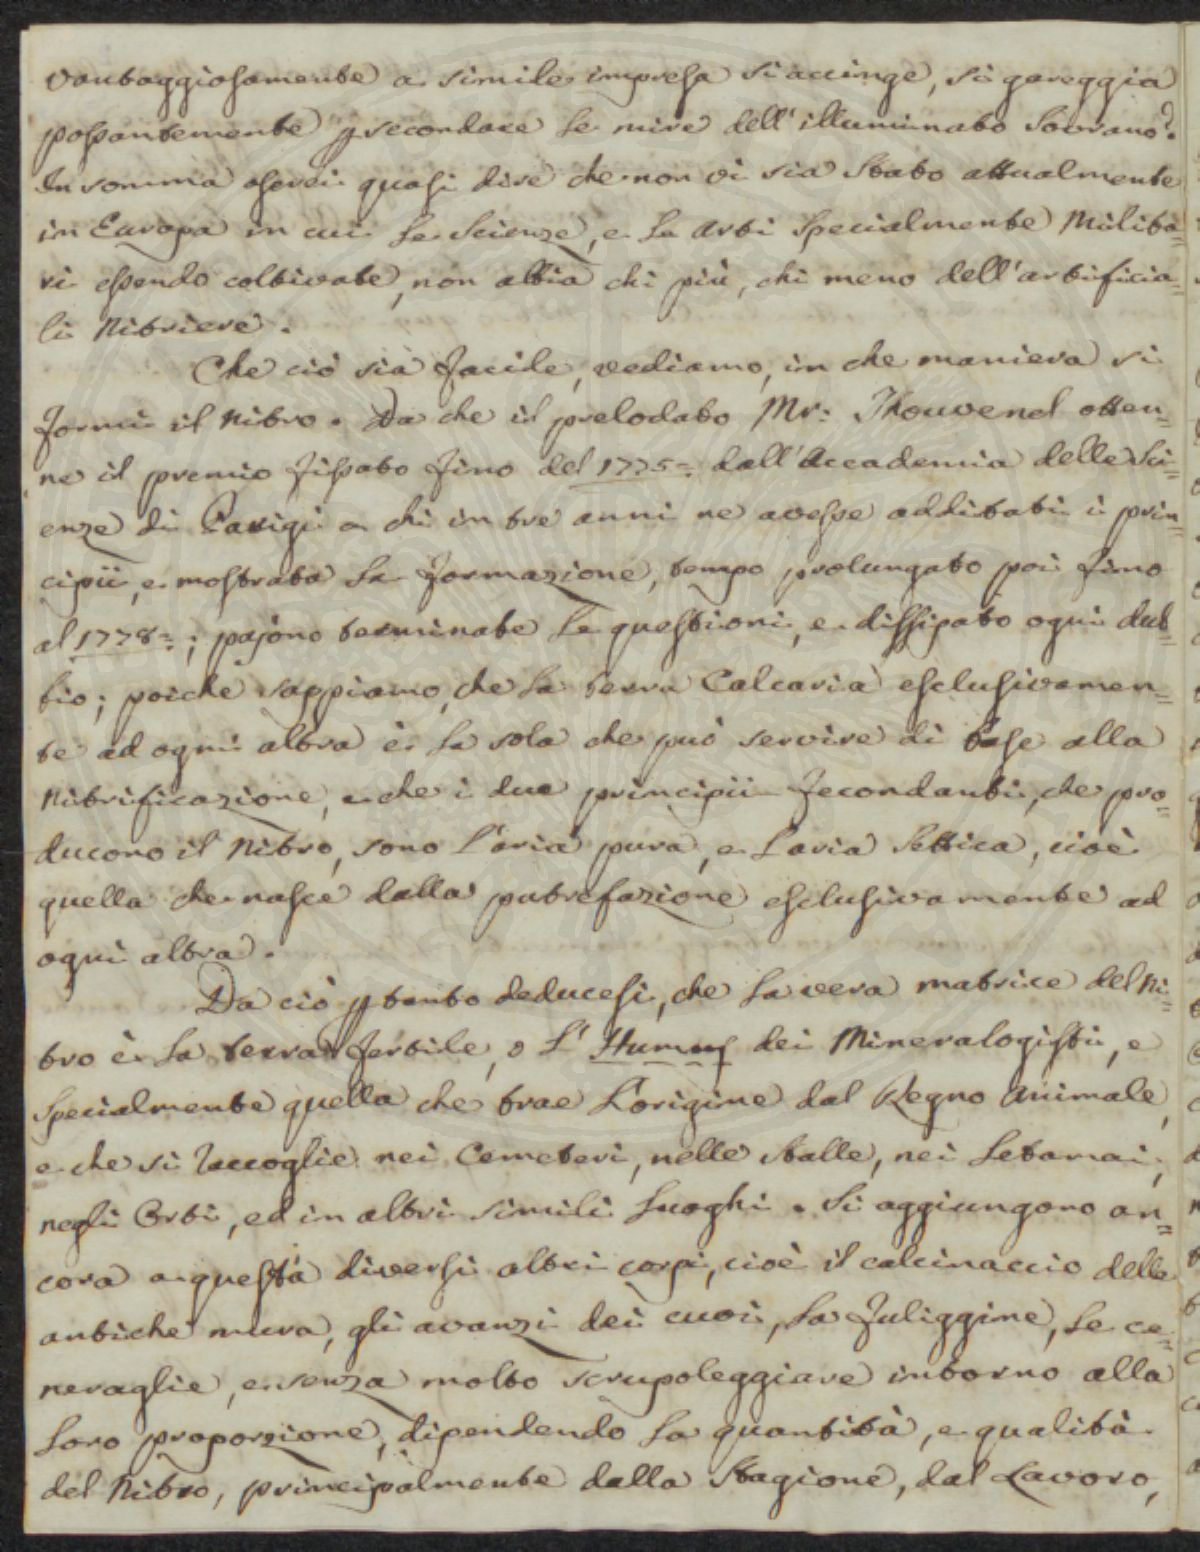 vantaggiosamente a simile impresa si accinge, si gareggia
possantemente p secondare le mire dell'illuminato Sovrano?
In somma oserei quasi dire che non vi sia Stato attualmente
in Europa in cui le Scienze, e le Arti Specialmente Milita=
ri essendo coltivate, non abbia chi più, chi meno dell'artificia=
li Nitriere.
Che ciò sia facile, vediamo, in che maniera si
formi il Nitro. Da che il prelodato Mr: Thouvenel otten=
ne il premio fissato fino del 1775= dall'Accademia delle Sci=
enze di Parigi a chi in tre anni ne avesse additati i prin=
cipii, e mostrata la formazione, tempo prolungato poi fino
al 1778=; pajono terminate le questioni, e dissipato ogni dub=
bio; poichè sappiamo, che la terra Calcaria esclusivamen=
te ad ogni altra è la sola che può servire di base alla
Nitrificazione, e che i due principii fecondanti, che pro=
ducono il Nitro, sono l'aria pura, e l'aria Settica, cioè
quella che nasce dalla putrefazione esclusivamente ad
ogni altra.
Da ciò ptanto deducesi, che la vera matrice del Ni=
tro è la terra fertile, o l'Humus dei Mineralogisti, e
Specialmente quella che trae l'origine dal Regno Animale,
e che si raccoglie nei Cemeteri, nelle Stalle, nei Letamai,
negli Orti, ed in altri simili luoghi. Si aggiungono an=
cora a questa diversi altri corpi, cioè il calcinaccio delle
antiche mura, gli avanzi dei cuoi, la fuliggine, le ce=
neraglie, e senza molto scrupoleggiare intorno alla
loro proporzione, dipendendo la quantità, e qualità
del Nitro, principalmente dalla Stagione, dal Lavoro,